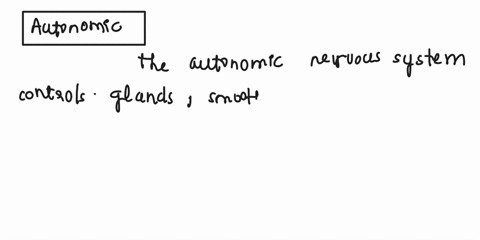 Autonomic
the autonomic nervous system
controls. glands, smoot